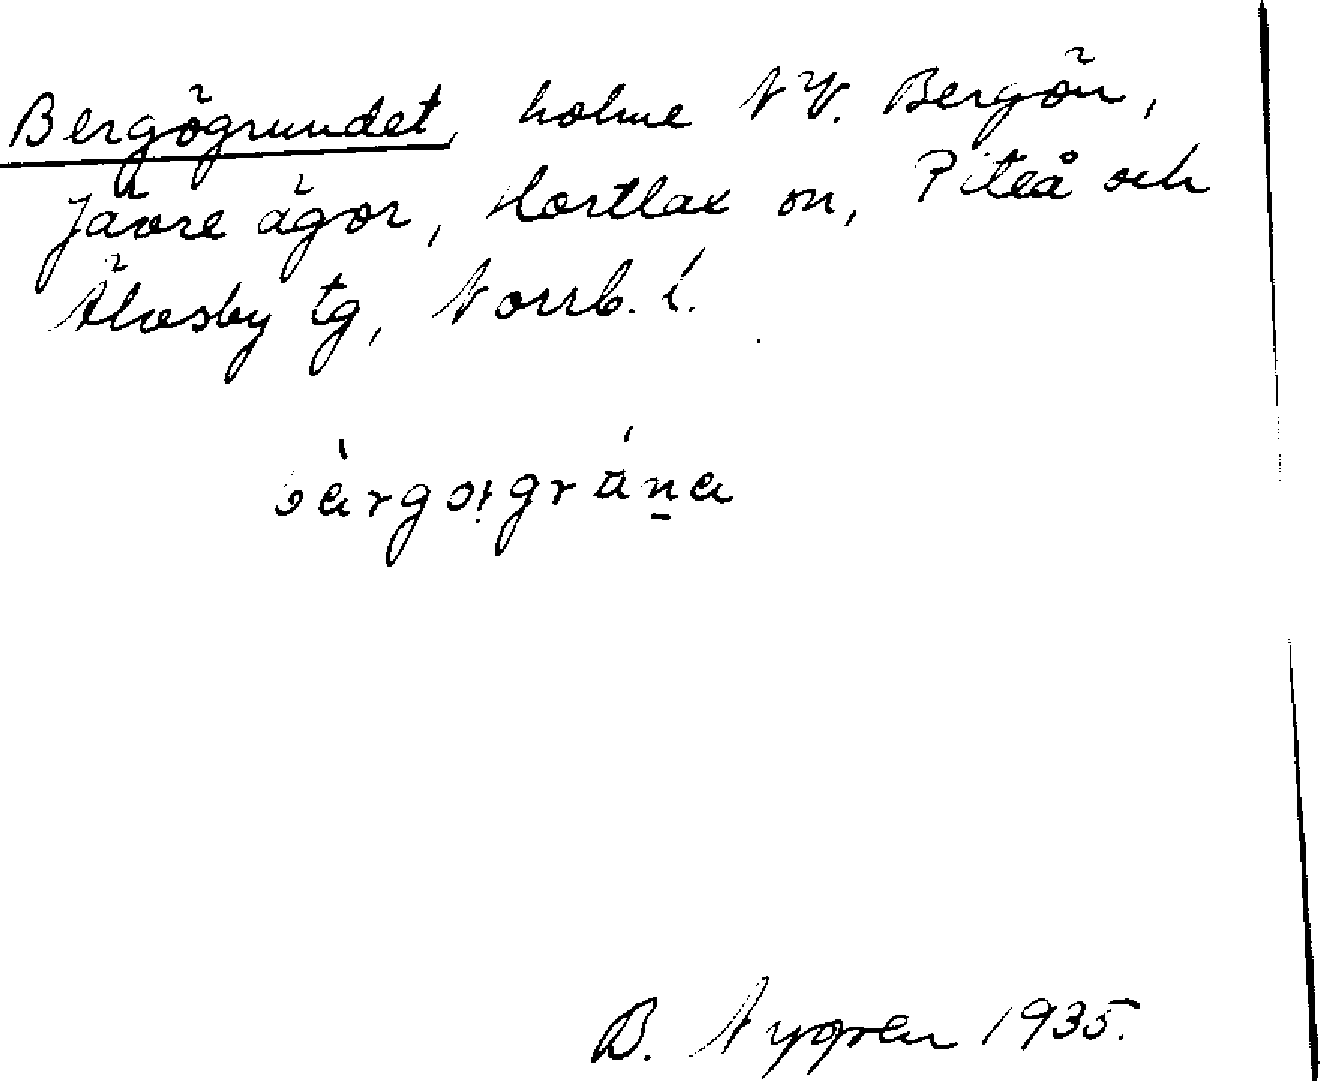 Bergögrundet, holme NV. Bergön,
Jävre ägor, Hortlax sn, Piteå och
Älvsby tg, Norrb. l.
B. Nygren 1935.